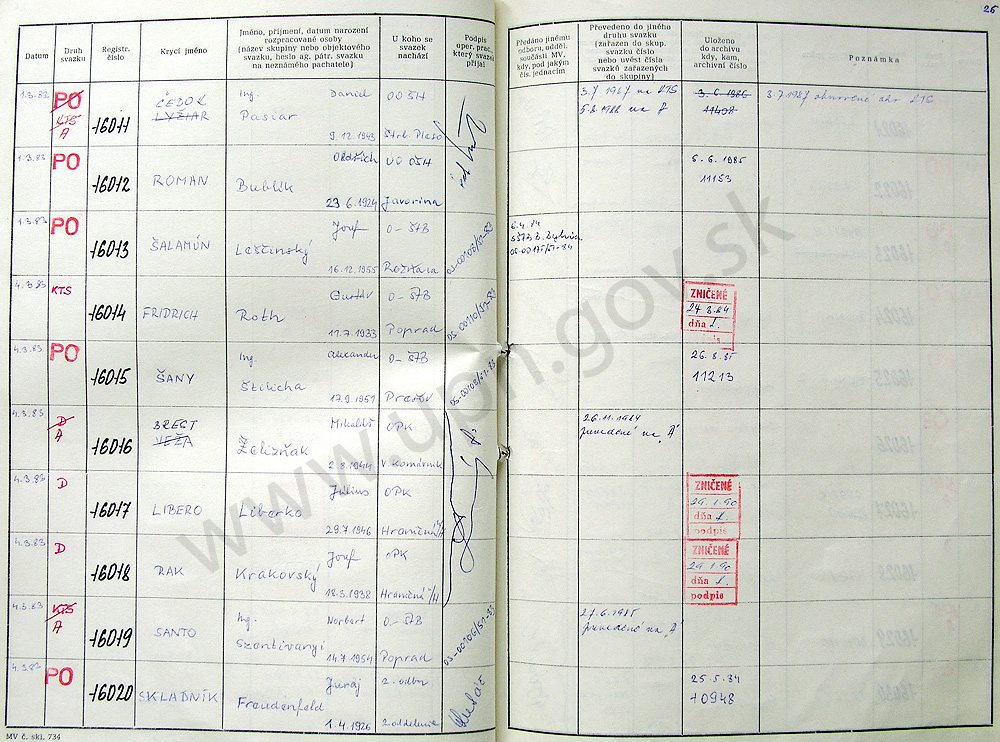 26
Datum
Druh svazku
Registr. číslo
Krycí jméno
Jméno, příjmení, datum narození
rozpracované osoby
(název skupiny nebo objektového
svazku, heslo ag. pátr. svazku
na neznámého pachatele)
U koho se
svazek
nachází
Podpis
oper. prac.,
který svazek
přijal
Předáno jinému
odboru, odděl.
součásti MV,
kdy, pod jakým
čís. jednacím
Převedeno do jiného
druhu svazku
(zařazen do skup.
svazku číslo
nebo uvést čísla
svazků zařazených
do skupiny)
Uloženo
do archivu
kdy, kam,
archivní číslo
Poznámka
1.3.83 PO KTS A 16011 ČELOK LYŽIAR Ing. Daniel Pasiar 9.12.1943 OO ŠH Štrb. Pleso
3.7.1987 na KTS
3.6.1986
11408
1.3.83 PO 16012 ROMAN Oldřich Bublík 23 6.1924 OO ŠH Javorina
6.6.1985
11153
1.3.83 PO 16013 ŠALAMÚN Jozef Leštinský 16.12.1955 O-ŠTB Rožňava
6.4.84
4.3.83 KTS 16014 FRIDRICH Gustáv Roth 17.7.1933 O-ŠTB Poprad
ZNIČENÉ
27 8.84
dňa
4.3.83 PO 16015 ŠANY Ing. Alexander Štilicha 17.9.1951 O-ŠTB Prešov
26.8.85
11213
4.3.83 D A 16016 BREST VEŽA Mikuláš Želizňak 2.8.1944 OPK V. Komárnik
26.11.1984
prevedené na "A"
4.3.83 D 16017 LIBERO Július Liberko 29.7.1946 OPK Hraničná
ZNIČENÉ
29.1.90
dňa
podpis
4.3.83 D 16018 RAK Jozef Krakovský 18.3.1938 OPK Hraničná
ZNIČENÉ
29 1.90
dňa
podpis
4.3.83 KTS A 16019 SANTO Ing. Norbert Szentivanyi 14.7.1954 O-ŠTB Poprad
27.6.1985
prevedené na "A"
4.3.83 PO 16020 SKLADNÍK Juraj Freudenfeld 1.4.1926 2. odbor 2. oddelenie
25.5.84
10948
www.upn.gov.sk
MV č. skl. 734